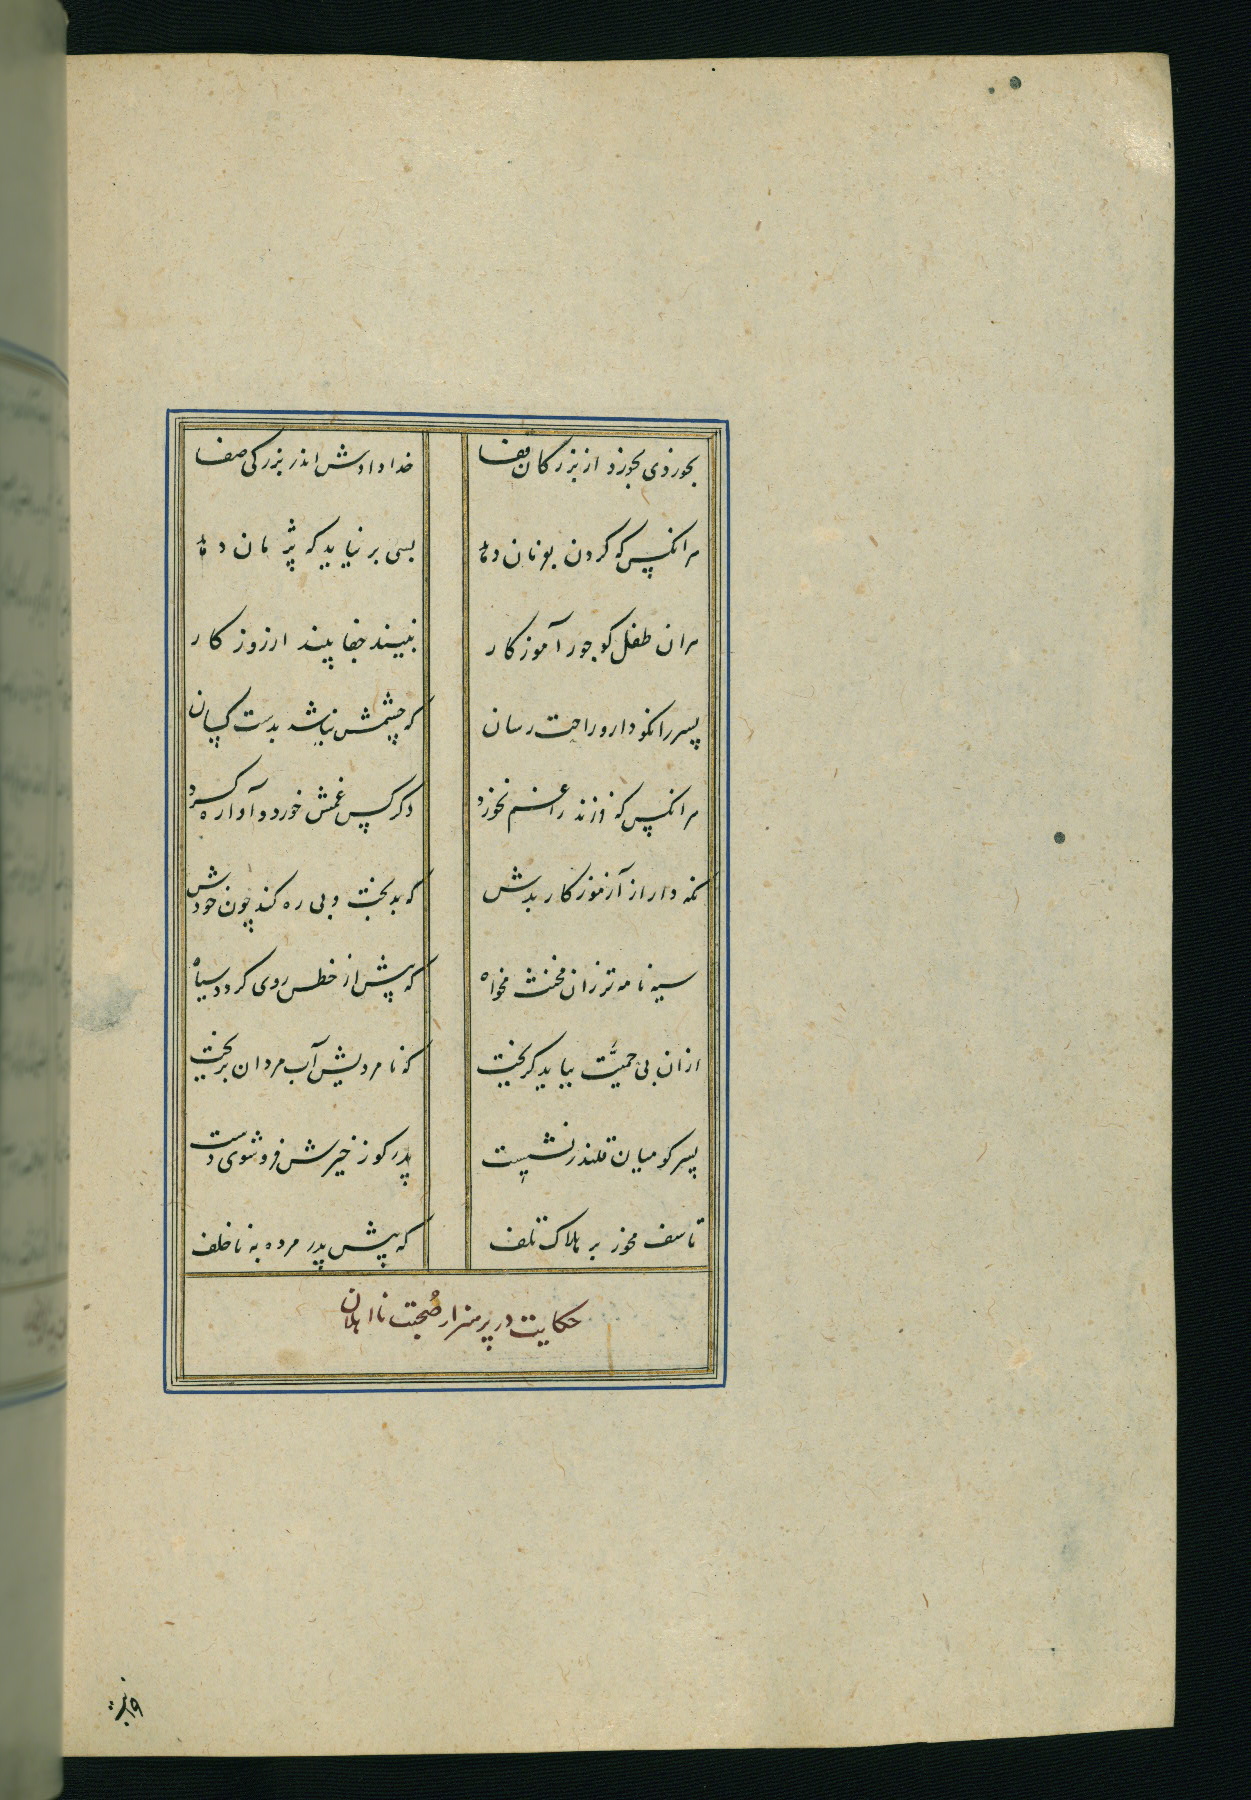 بخوردی بخورد از بزرگان قفا خدا دادش اندر بزرگی صفا
هر انکس که گردن بفرمان نهد بسی بر نیاید که فرمان دهد
هر ان طفل کو جور آموزگار نبیند جفا بیند از روزگار
پسر را نکو دار و راحت رسان که چشمش نباشد بدست کسان
هر انکس که فرزند را غم نخورد دگر کس غمش خورد و آواره کرد
نگه دار از آموزگار بدش که بدبخت و بی ره کند چون خودش
سیه نامه تر زان مخنث مخواه که پیش از خطش روی گردد سیاه
ازان بی حمیّت بباید گریخت که نامردیش آب مردان بریخت
پسر کو میان قلندر نشست پدر گو ز خیرش فرو شوی دست
تاسف مخور بر هلاک تلف که پیش پدر مرده به ناخلف
حکایت در پرهیز از صُحبت نااهلان